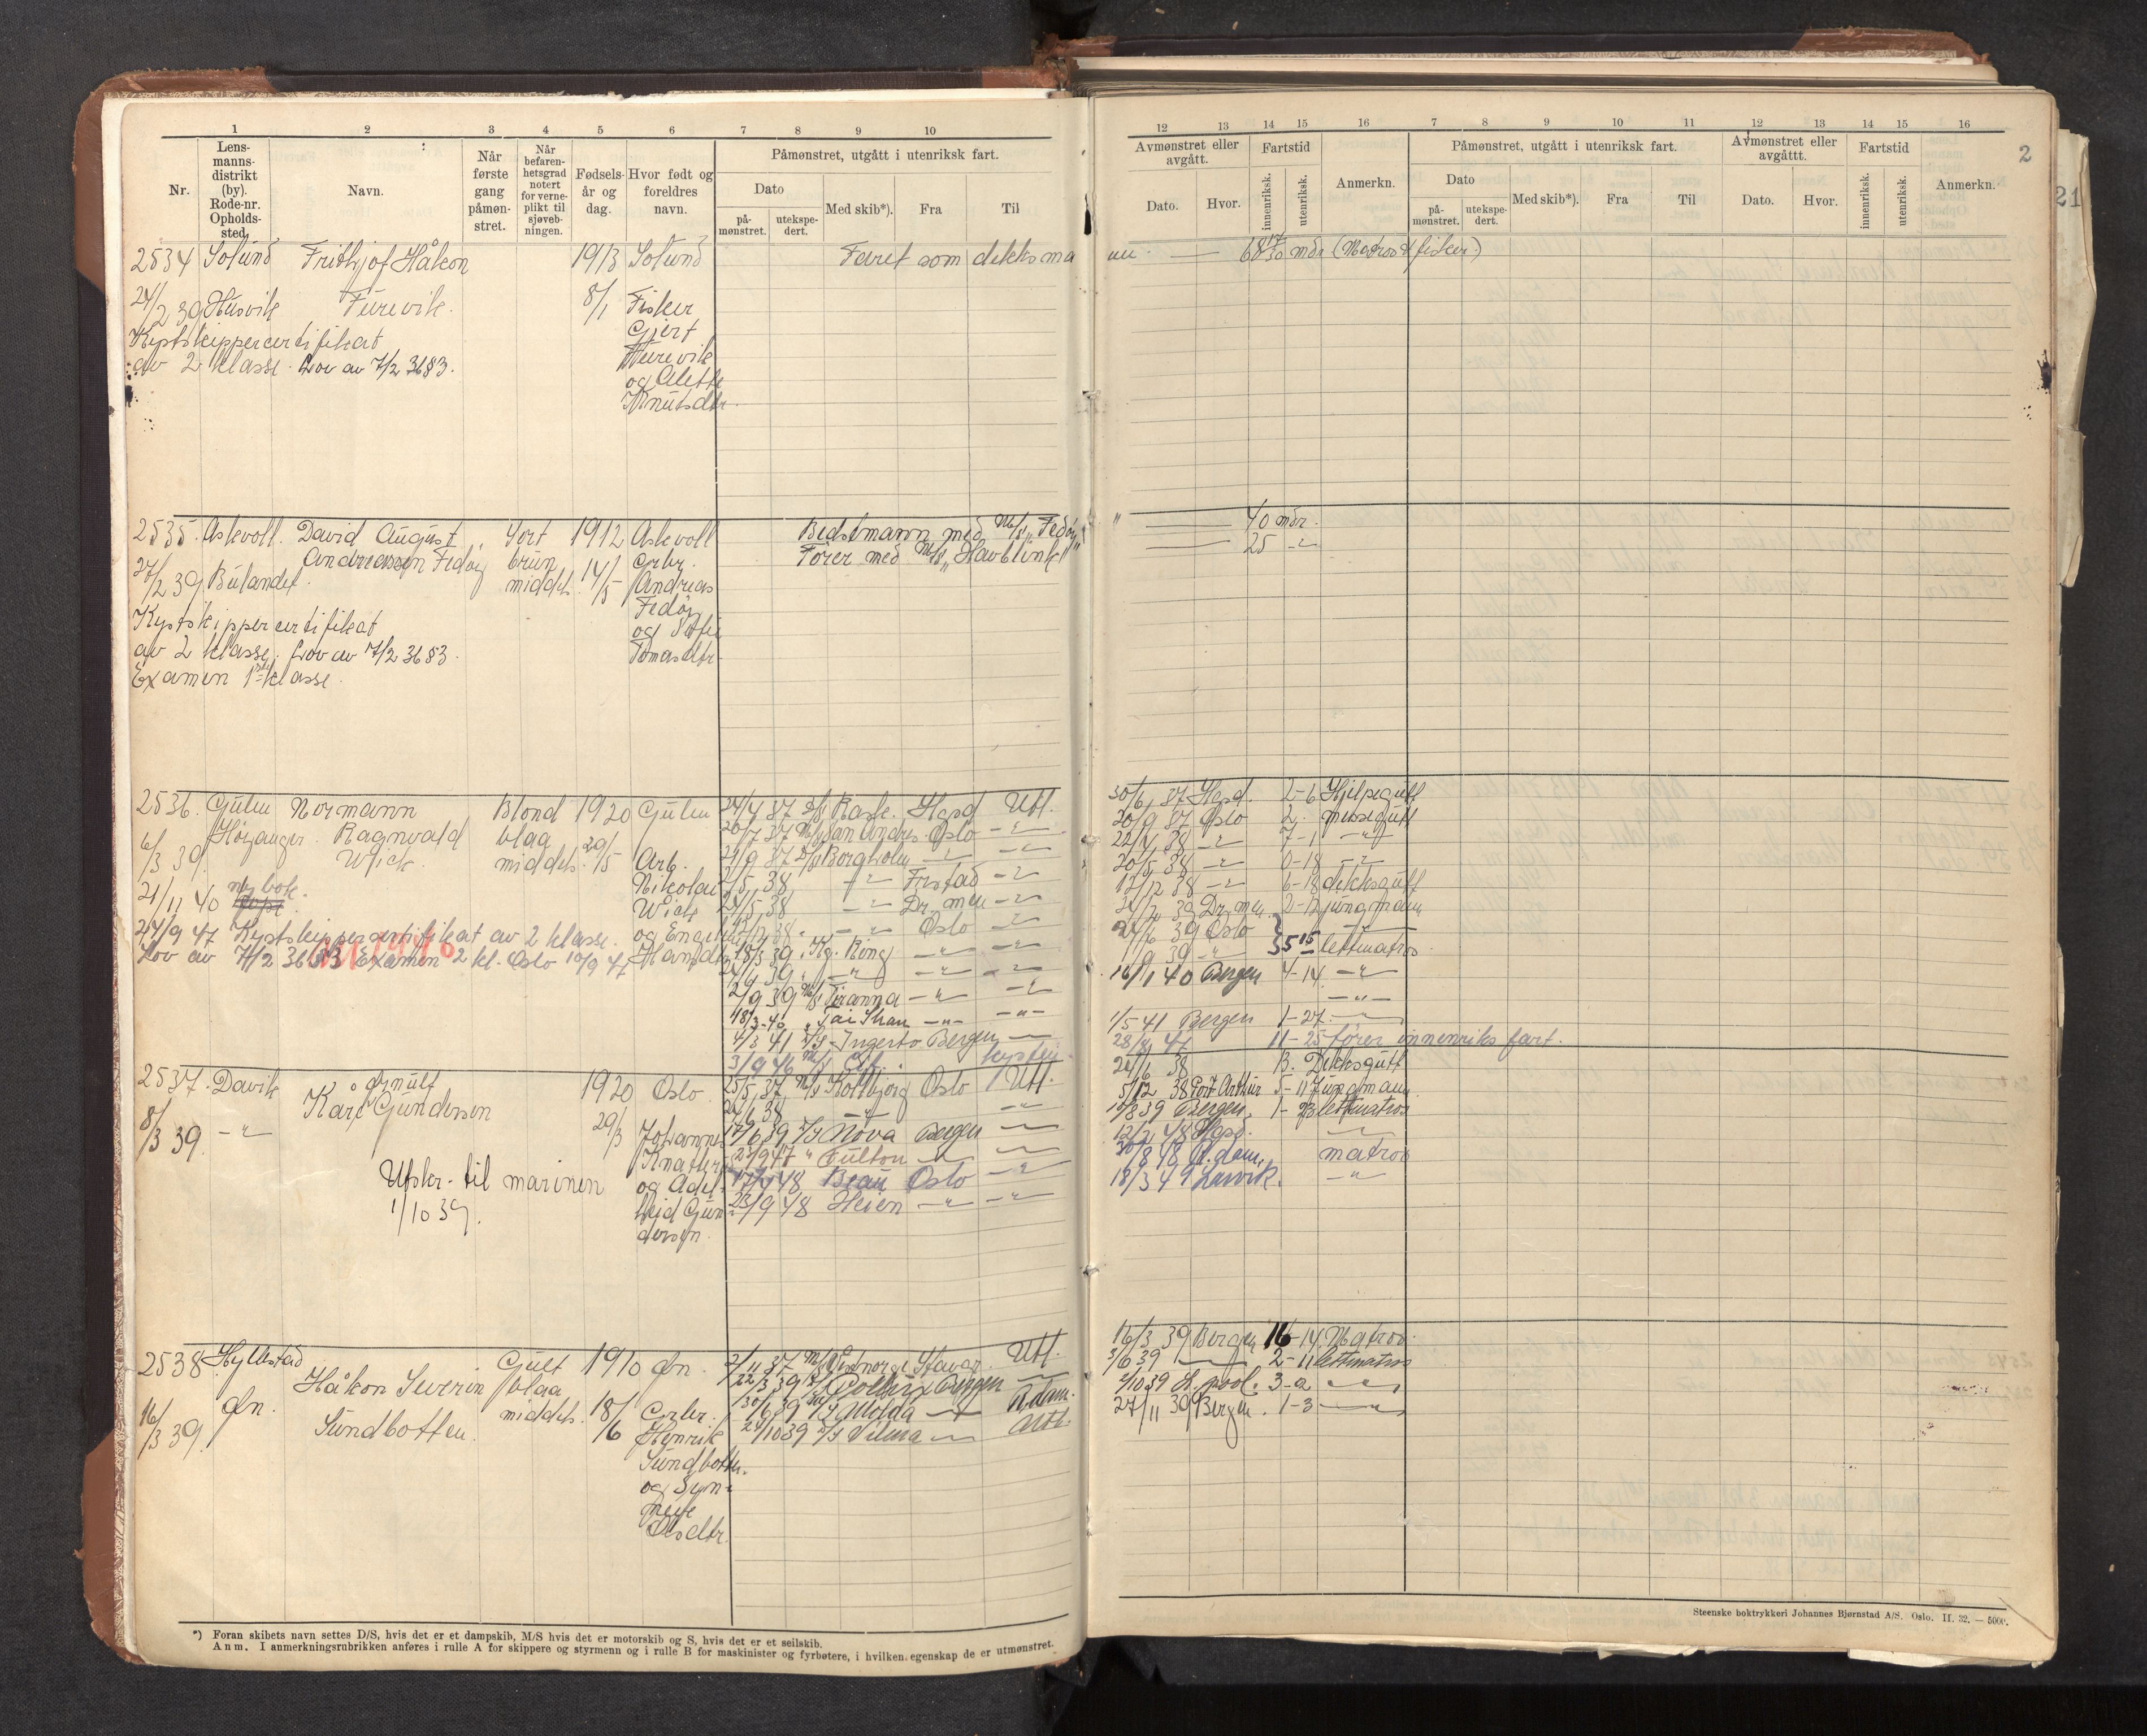 1 2 3 4 5 6 7 8 9 10
Nr.
Lens-
manns-
distrikt
(by).
Rode-nr.
Opholds-
sted.
Navn.
Når
første
gang
påmøn-
stret.
Når
befaren-
hetsgrad
notert
for verne-
plikt til
sjøveb-
ningen.
Fødsels-
år og
dag.
Hvor født og
foreldres
navn.
Påmønstret, utgått i utenriksk fart.
Dato
på-
mønstret.
utekspe-
dert.
Med skib*).
Fra
Til
12 13 14 15 16 7 8 9 10 11 12 13 14 15 16
Avmønstret eller
avgått.
Dato.
Hvor.
Fartstid
innenriksk.
utenriksk.
Anmerkn.
Påmønstret, utgått i utenriksk fart.
Dato
på-
mønstret.
utekspe-
dert.
Med skib*).
Fra
Til
Avmønstret eller
avgåttt.
Dato.
Hvor.
Fartstid
innenriksk.
utenriksk.
Anmerkn.
2
21
2534 Solund Frithjof Håkon 1913 Solund Faret som dekksma
24/2 39 Husvik Furevik. 8/1 Fisker
Kystskippercertifikat Gjert
av 2 klasse. Lov av 7/2 36 § 3. Furevik
og Alette
Knutsdtr.
68 17/30 mdr (Matros & fisker)
2535. Askvoll. David August Sort 1912 Askvoll Bedstmann med M/S "Fedøy"
Andreassen Fedøy brun Førер med M/S "Havblink"
27/2 39 Bulandet. middels. 14/5 Andreas
Kystskippercertifikat Fedøy
av 2 klasse. Lov av 7/2 36 § 3. og
Examen 1ste klasse. Tomasdtr.
40 mdr.
25 -"-
2536. Gulen Normann Blond 1920 Gulen 24/4 37 Hgsd Utl.
6/3 39. Høyanger Ragnvald blaa 29/5 Arb. 20/7 37 M/S San Andres Oslo -"-
Wick. middels. Nikolai 21/9 37 D/S Borgholm -"- -"-
21/11 40 ny bok. Wick
24/9 47 Kystskippercertifikat av 2 klasse.
Lov av 7/2 36 § 3 Examen 2 kl. Oslo 10/9 47
Kg. Ring
2/9 39 M/S
18/3-40 "Tai Shan -"- -"-
4/3 41 Bergen
3/9 46 M/S
30/6 37 Hgsd. 2-6 Hjelpegutt
20/9 37 Oslo 2. messegutt
22/4 38 -"- 7-1 -"-
20/5 38 -"- 0-18 -"-
12/12 38 -"- 6-18 dekksgutt
Dr.men. 2-12 jungmann
39 Oslo
9 39 -"- 5 15 lettmatros
16/1 40 Bergen 4-14 -"-
-"-
1/5 41 Bergen 1-27 -"-
28/8 47 11-25 fører innenriks fart.
2537. Davik Ørnulf 1920 Oslo. 25/5 37 M/S Kollbjørg Oslo Utl.
8/3 39. -"- Kåre Gundersen 29/3 Johannes 17/6 39 D/S Nova Bergen
" Fulton
Utskr. til marinen og Adel- 48 Beau Oslo -"-
1/10 39. heid Gun- 23/9 48 Heien -"- -"-
dersen.
24/6 38 B. Dekksgutt
5/12 38 Port Arthur 5-11 Jungmann
39 Bergen. 1-23 lettmatros
12/2 48 Hgsd. -"-
30/8 48 A.dam. matros
18/3 49 Larvik. -"-
2538. Hyllestad Gult 1910 Øn. 2/11 37 M/S Vestnorge Stavgr. Utl.
Øn. Håkon Severin blaa 22/3 39 D/S Pollux Bergen
16/3 39. Sundbotten. middels. 18/6 Henrik 39 Molda R.dam.
Sundbotten. 24/10 39 D/S Vilma Utl.
og Syn-
neve
Olsdtr.
16/3 39 Bergen 16-14 Matros.
3/6 39 2-11 lettmatros
2/10 39 L.pool. 3-2
27/11 39 Bergen. 1-3
*) Foran skibets navn settes D/S, hvis det er et dampskib, M/S hvis det er motorskib og S, hvis det er et seilskib.
Anm. I anmerkningsrubrikken anføres i rulle A for skippere og styrmenn og i rulle B for maskinister og fyrbøtere, i hvilken egenskap de er utmønstret.
Steenske boktrykkeri Johannes Bjørnstad A/S. Oslo. II. 32. — 5000.